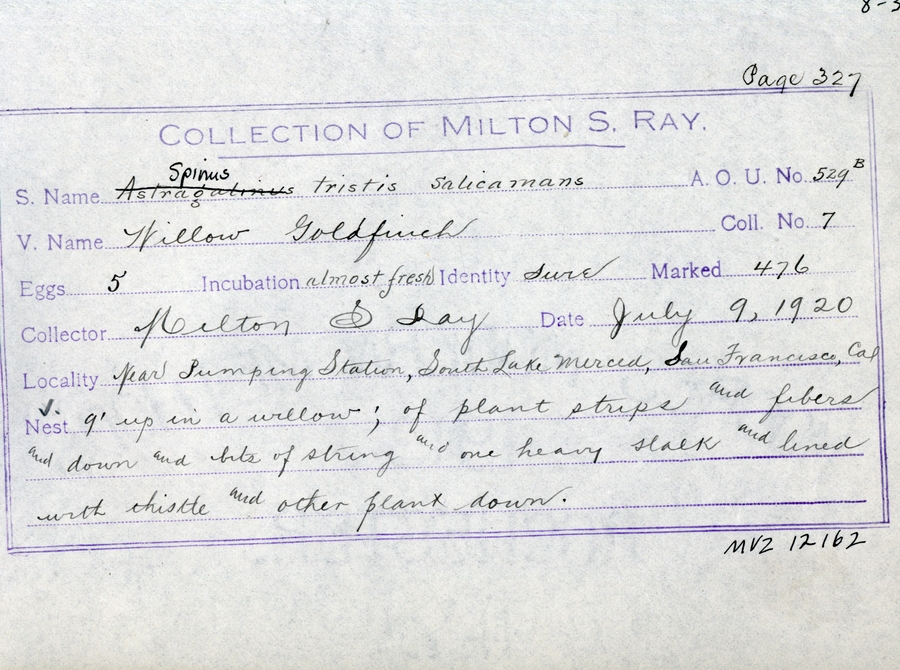 8-3
Page 327
COLLECTION OF MILTON S. RAY.
Spinus
S. Name Astragalinus tristis salicamans A. O. U. No. 529B
V. Name Willow Goldfinch Coll. No. 7
Eggs 5 Incubation almost fresh Identity sure Marked 476
Collector Milton S Ray Date July 9, 1920
Locality Near Pumping Station, South Lake Merced, San Francisco, Cal
Nest 9' up in a willow; of plant strips and fibers
and down and bits of string and one heavy stalk and lined
with thistle and other plant down.
MVZ 12162